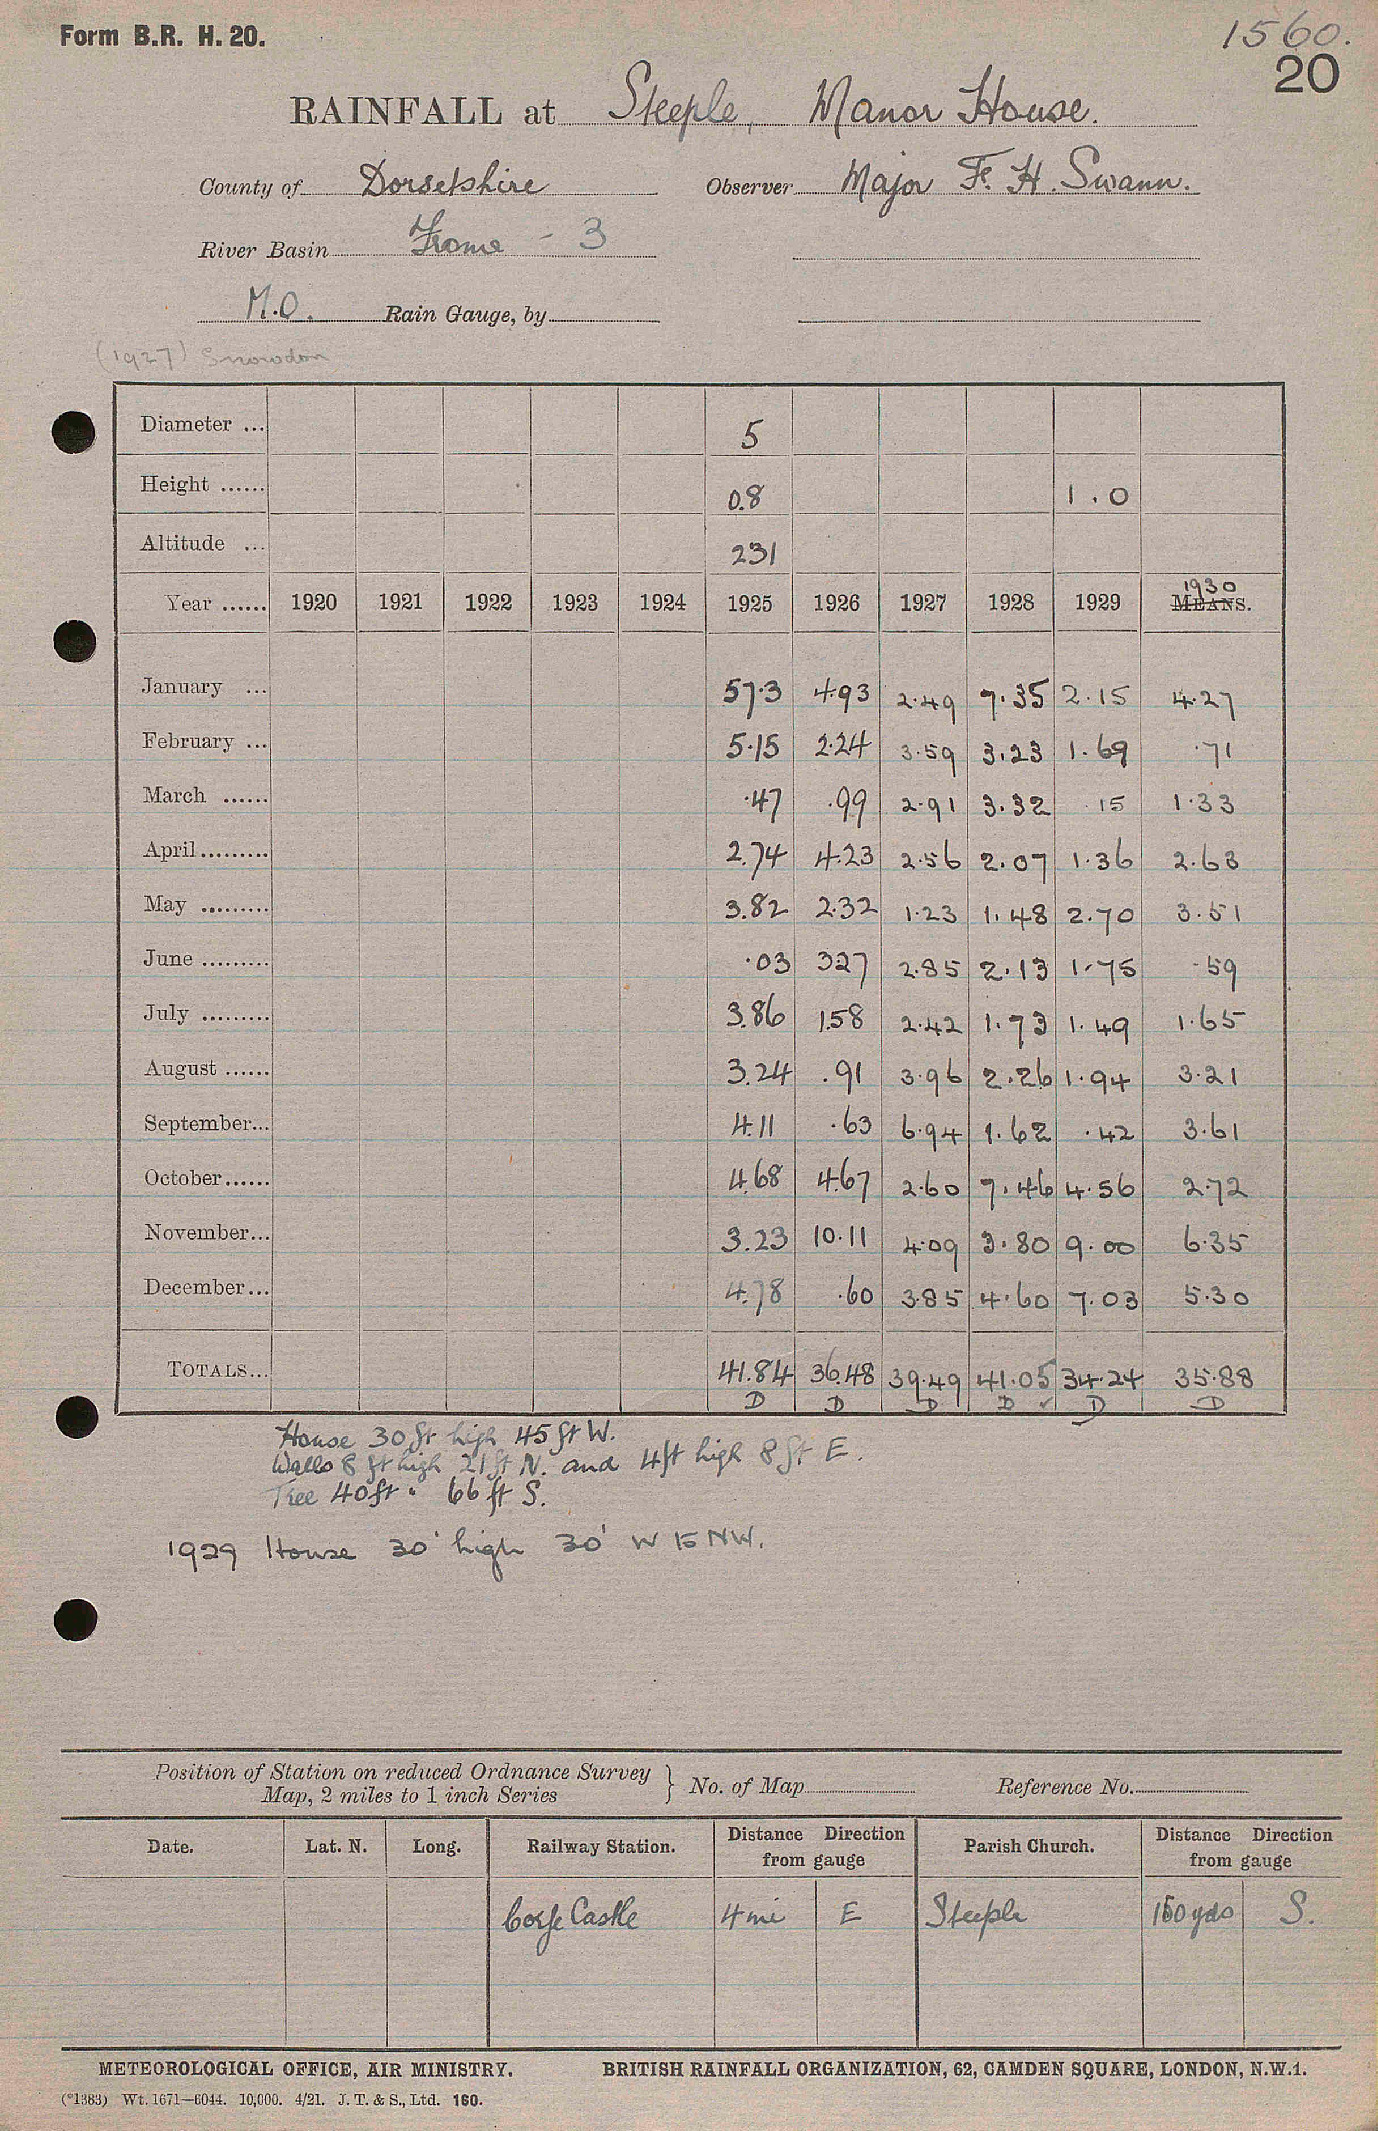 Form B.R. H. 20.
1560.
20
RAINFALL at Steeple, Manor House.
County of Dorsetshire Observer Major F. H. Swann.
River Basin Frome - 3
M.O. Rain Gauge, by
(1927) Snowdon
Diameter ... 5
Height ...... 0.8 1.0
Altitude ... 231
Year ...... 1920 1921 1922 1923 1924 1925 1926 1927 1928 1929 1930 MEANS.
January ... 57.3 4.93 2.49 7.35 2.15 4.27
February ... 5.15 2.24 3.59 3.23 1.69 .71
March ...... .47 .99 2.91 3.32 .15 1.33
April......... 2.74 4.23 2.56 2.07 1.36 2.63
May ......... 3.82 2.32 1.23 1.48 2.70 3.51
June ......... .03 327 2.85 2.13 1.75 .59
July ......... 3.86 1.58 2.42 1.73 1.49 1.65
August ...... 3.24 .91 3.96 2.26 1.94 3.21
September... 4.11 .63 6.94 1.62 .42 3.61
October...... 4.68 4.67 2.60 7.46 4.56 2.72
November... 3.23 10.11 4.09 3.80 9.00 6.35
December... 4.78 .60 3.85 4.60 7.03 5.30
TOTALS... 41.84 36.48 39.49 41.05 34.24 35.88
D D D D ✓ D D
House 30 ft high 45 ft W.
Walls 8 ft high 21 ft N. and 4ft high 8 ft E.
Tree 40ft " 66 ft S.
1929 House 30' high 30' W to NW.
Position of Station on reduced Ordnance Survey
Map, 2 miles to 1 inch Series } No. of Map Reference No.
Date. Lat. N. Long. Railway Station. Distance Direction from gauge Parish Church. Distance Direction from gauge
Corfe Castle 4 mi E Steeple 150 yds S.
METEOROLOGICAL OFFICE, AIR MINISTRY. BRITISH RAINFALL ORGANIZATION, 62, CAMDEN SQUARE, LONDON, N.W.1.
(*1383) Wt. 1671—6044. 10,000. 4/21. J. T. & S., Ltd. 160.